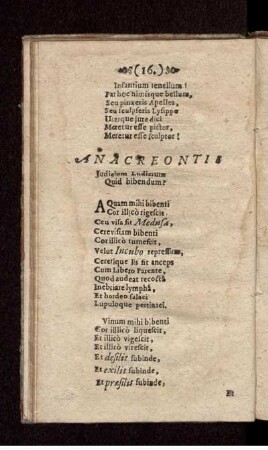 (16.)
Infantium tenellum!
Par hoc nimisque bellum,
Seu pinxeris Apelles,
Seu sculpseris Lysippe
Uterque jure dici
Meretur esse pictor,
Meretur esse sculptor!
ANACREONTIS
Judicium
Quid bibendum?
AQuam mihi bibenti
Cor illicò rigescit
Ceu visa sit Medusa,
Cerevisiam bibenti
Cor illicò tumescit,
Velut Incubo repressum,
Ceterique lis fit anceps
Cum Libero Parente,
Quod audeat recoctâ
Inebriare lymphâ,
Et hordeo salaci
Lupuloque pertinaci.
Vinum mihi bibenti
Cor illicò liquescit,
Et illicò vigescit,
Et illicò virescit,
Et desilit subinde,
Et exilit subinde,
Et præsilit subinde,
Et